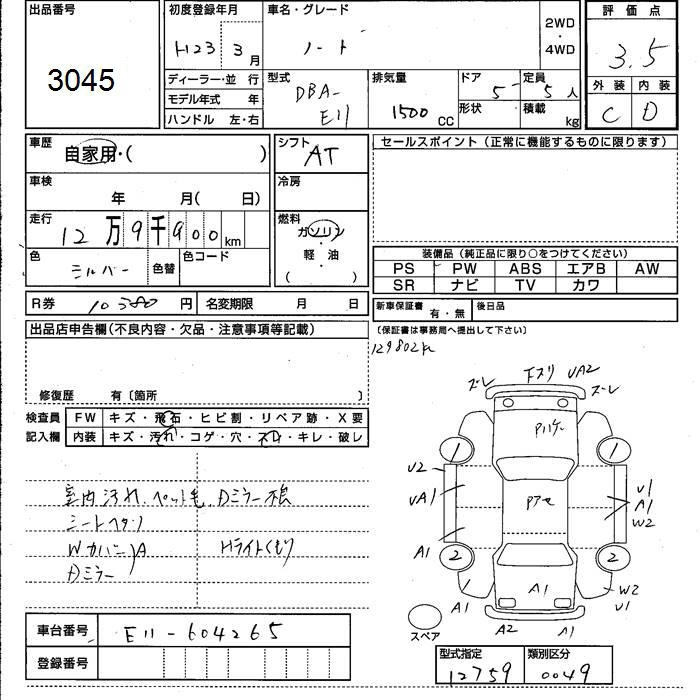 出品番号
3045
初度登録年月
H23 3月
車名・グレード
ノート
2WD
・
4WD
評価点
3.5
外装 内装
C D
ディーラー・並 行
モデル年式 年
ハンドル 左・右
型式
DBA-
E11
排気量
1500 cc
ドア
5
定員
5人
形状
積載
kg
車歴
自家用・( )
シフト
AT
セールスポイント(正常に機能するものに限ります)
車検
年 月( 日)
冷房
走行
12万9千900km
燃料
ガソリン
軽・油
( )
色
シルバー
色替
色コード
装備品(純正品に限り○をつけてください)
PS PW ABS エアB AW
SR ナビ TV カワ
R券 10580円
名変期限 月 日
新車保証書 有・無
後日品
出品店申告欄(不良内容・欠品・注意事項等記載)
(保証書は事務局へ提出して下さい)
129802K
修復歴 有〔箇所 〕
検査員
記入欄
FW キズ・飛石・ヒビ割・リペア跡・X要
内装 キズ・汚れ・コゲ・穴・ネジ・キレ・破レ
室内汚れ、ペット毛
シートヘタリ
Dミラー
Hライトくもり
ズレ
Fスリ UA2
ズレ
1
1
U2
UA1
A1
U1
A1
W2
2
2
A1
A1
W2
U1
A2
A1
スペア
車台番号 E11-604265
登録番号
型式指定
12759
類別区分
0049